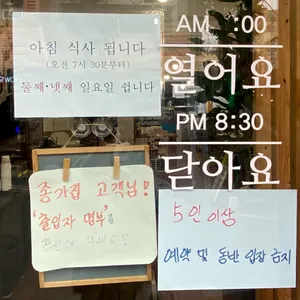 아침 식사 됩니다
(오전 7시 30분부터)
둘째·넷째 일요일 쉽니다
AM :00
열어요
PM 8:30
닫아요
종가집 고객님!
'출입자 명부'를
5인 이상
예약 및 동반 입장 금지